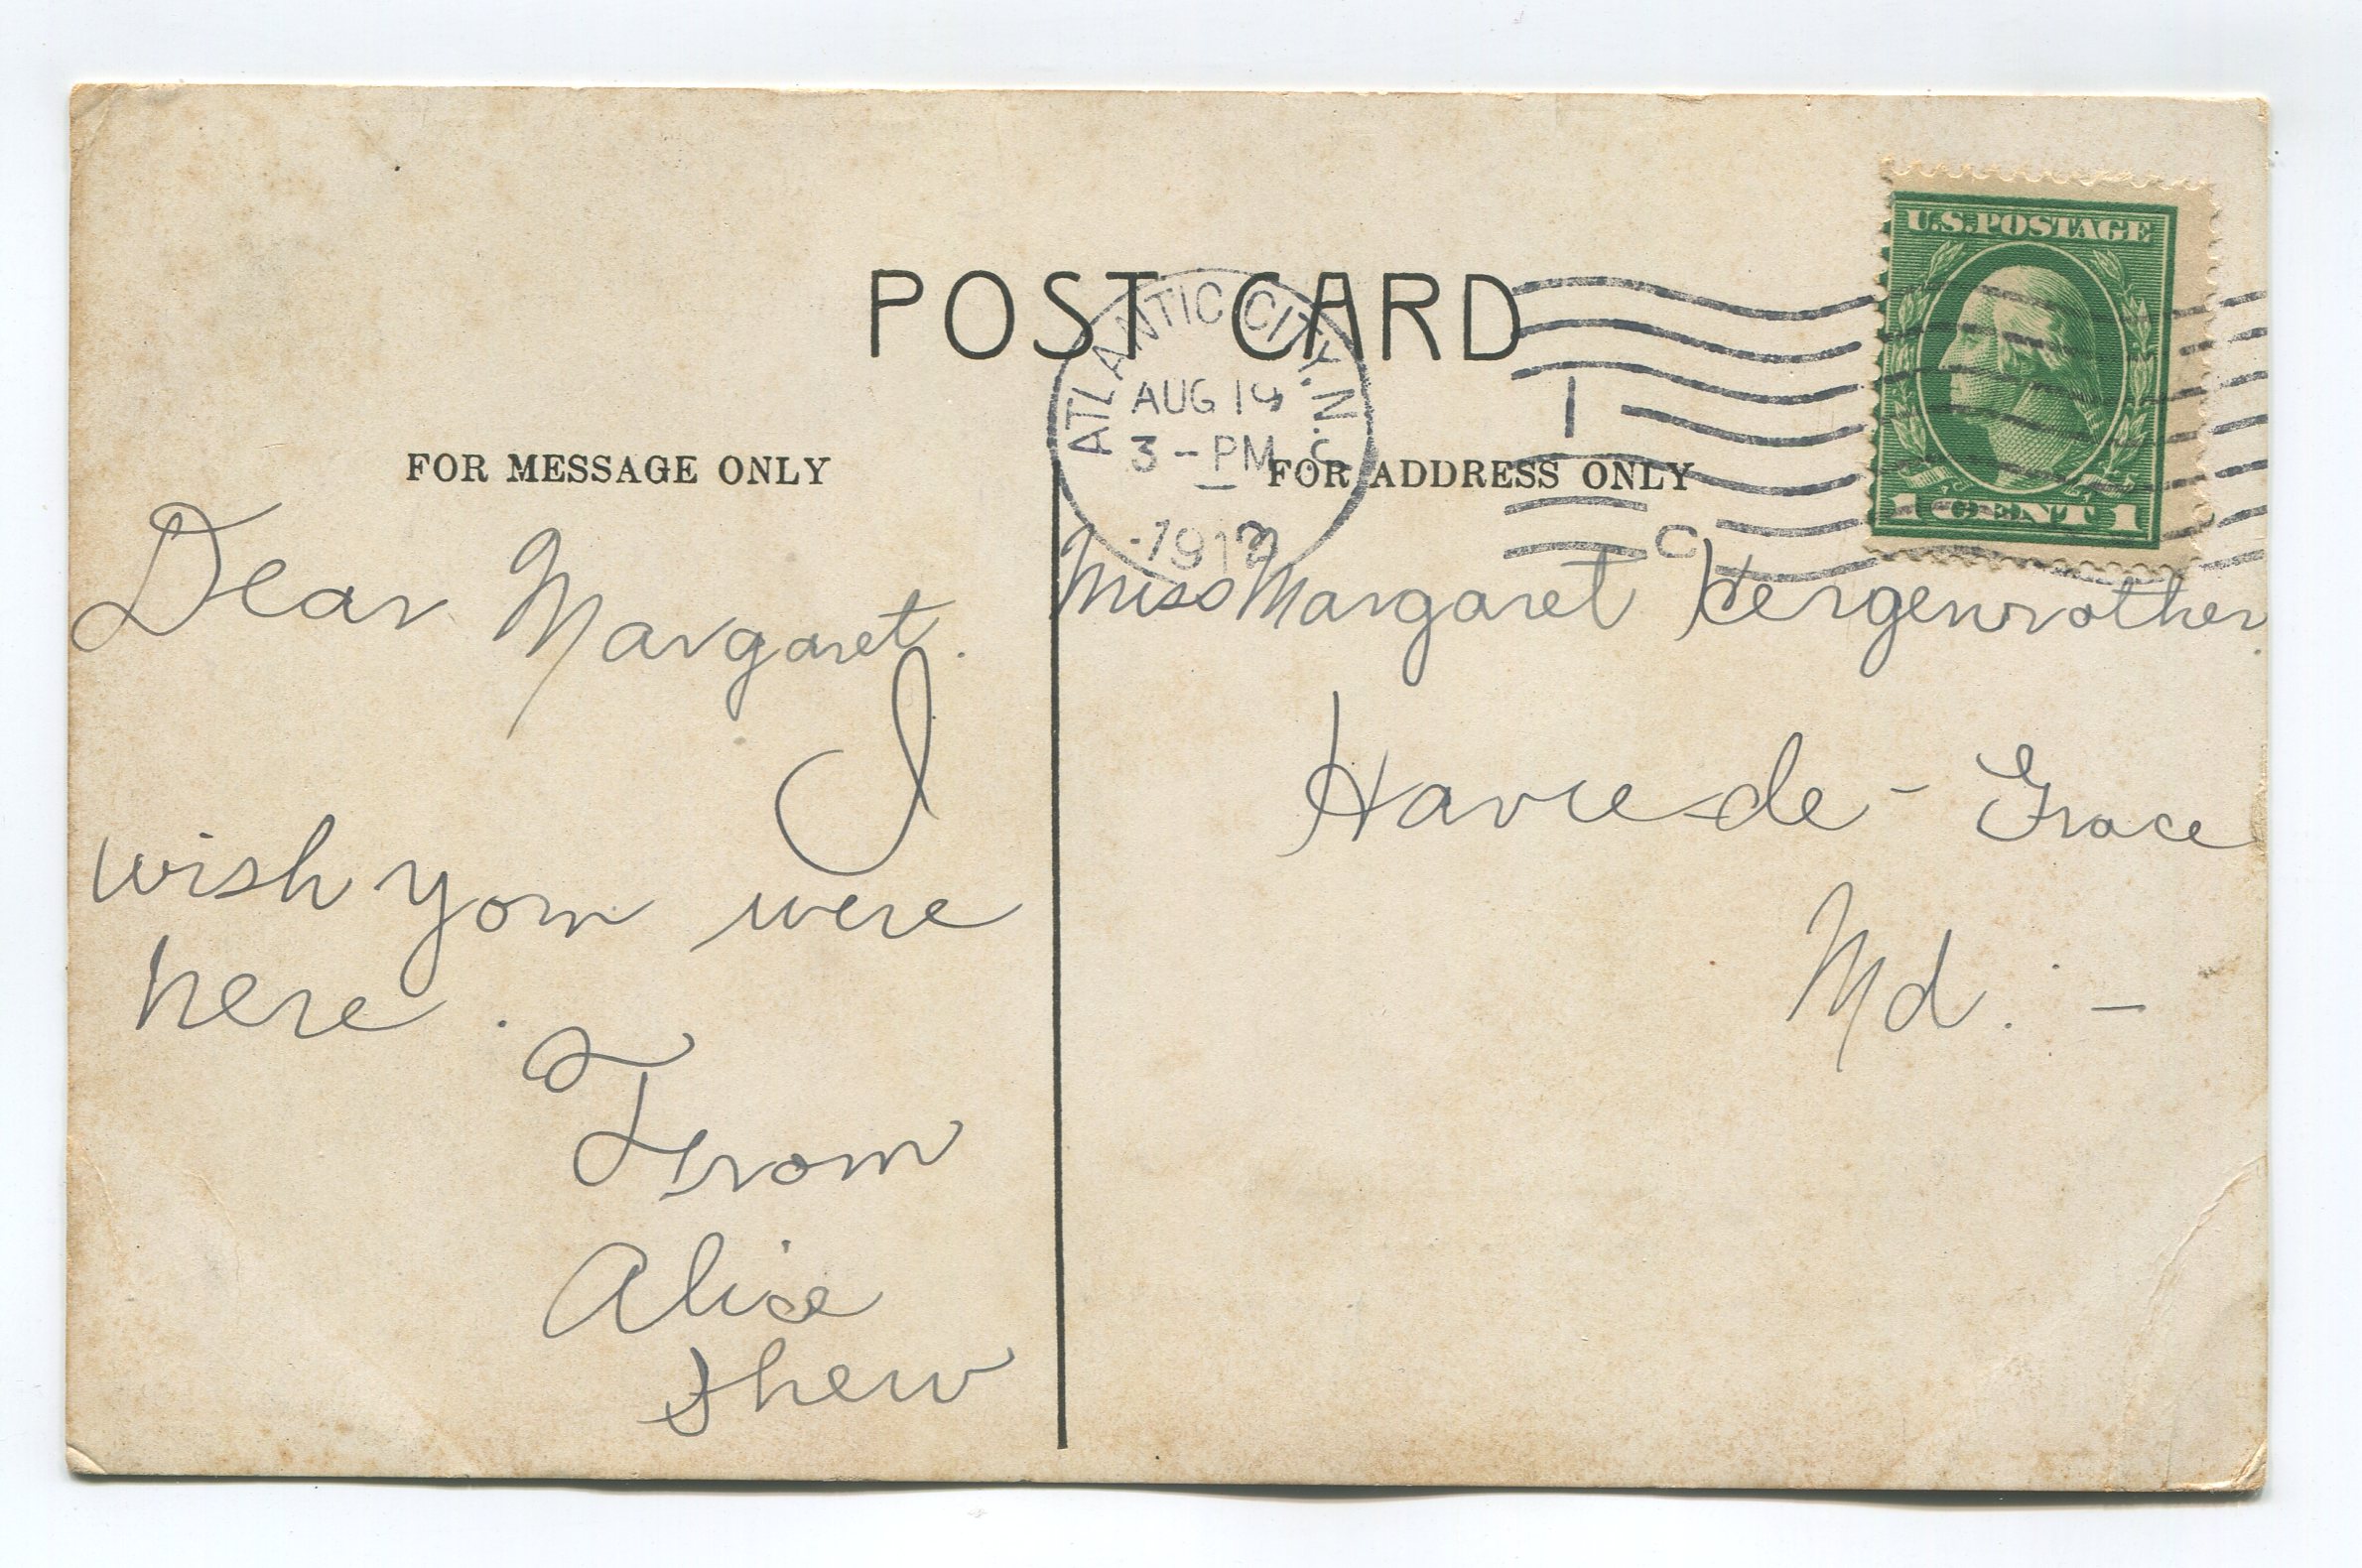 POST CARD
ATLANTIC CITY, N.J.
AUG 19
3 - PM
1912
U.S. POSTAGE
1 CENT 1
FOR MESSAGE ONLY
FOR ADDRESS ONLY
Dear Margaret.
I
wish you were
here.
From
Alice
Shew
Miss Margaret Hergenrother
Havre-de-Grace
Md. -